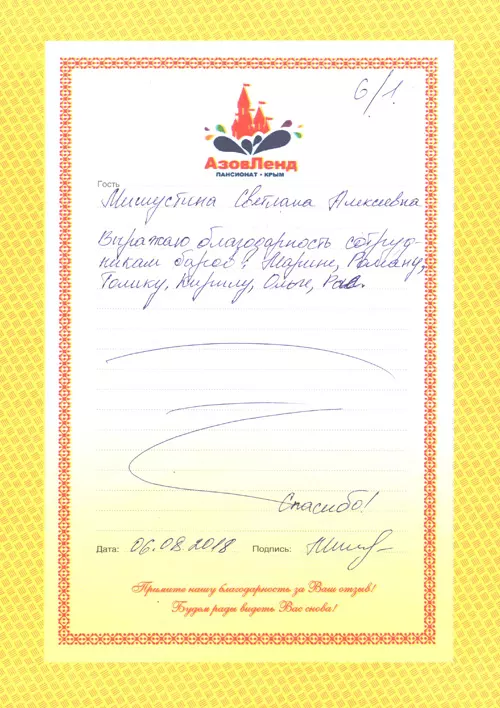 6/1
АзовЛенд
ПАНСИОНАТ • КРЫМ
Гость
Мишустина Светлана Алексеевна
Выражаю благодарность сотруд-
никам баров: Марине, Роману,
Толику, Кириллу, Ольге,
Спасибо!
Дата: 06.08.2018 Подпись:
Примите нашу благодарность за Ваш отзыв!
Будем рады видеть Вас снова!